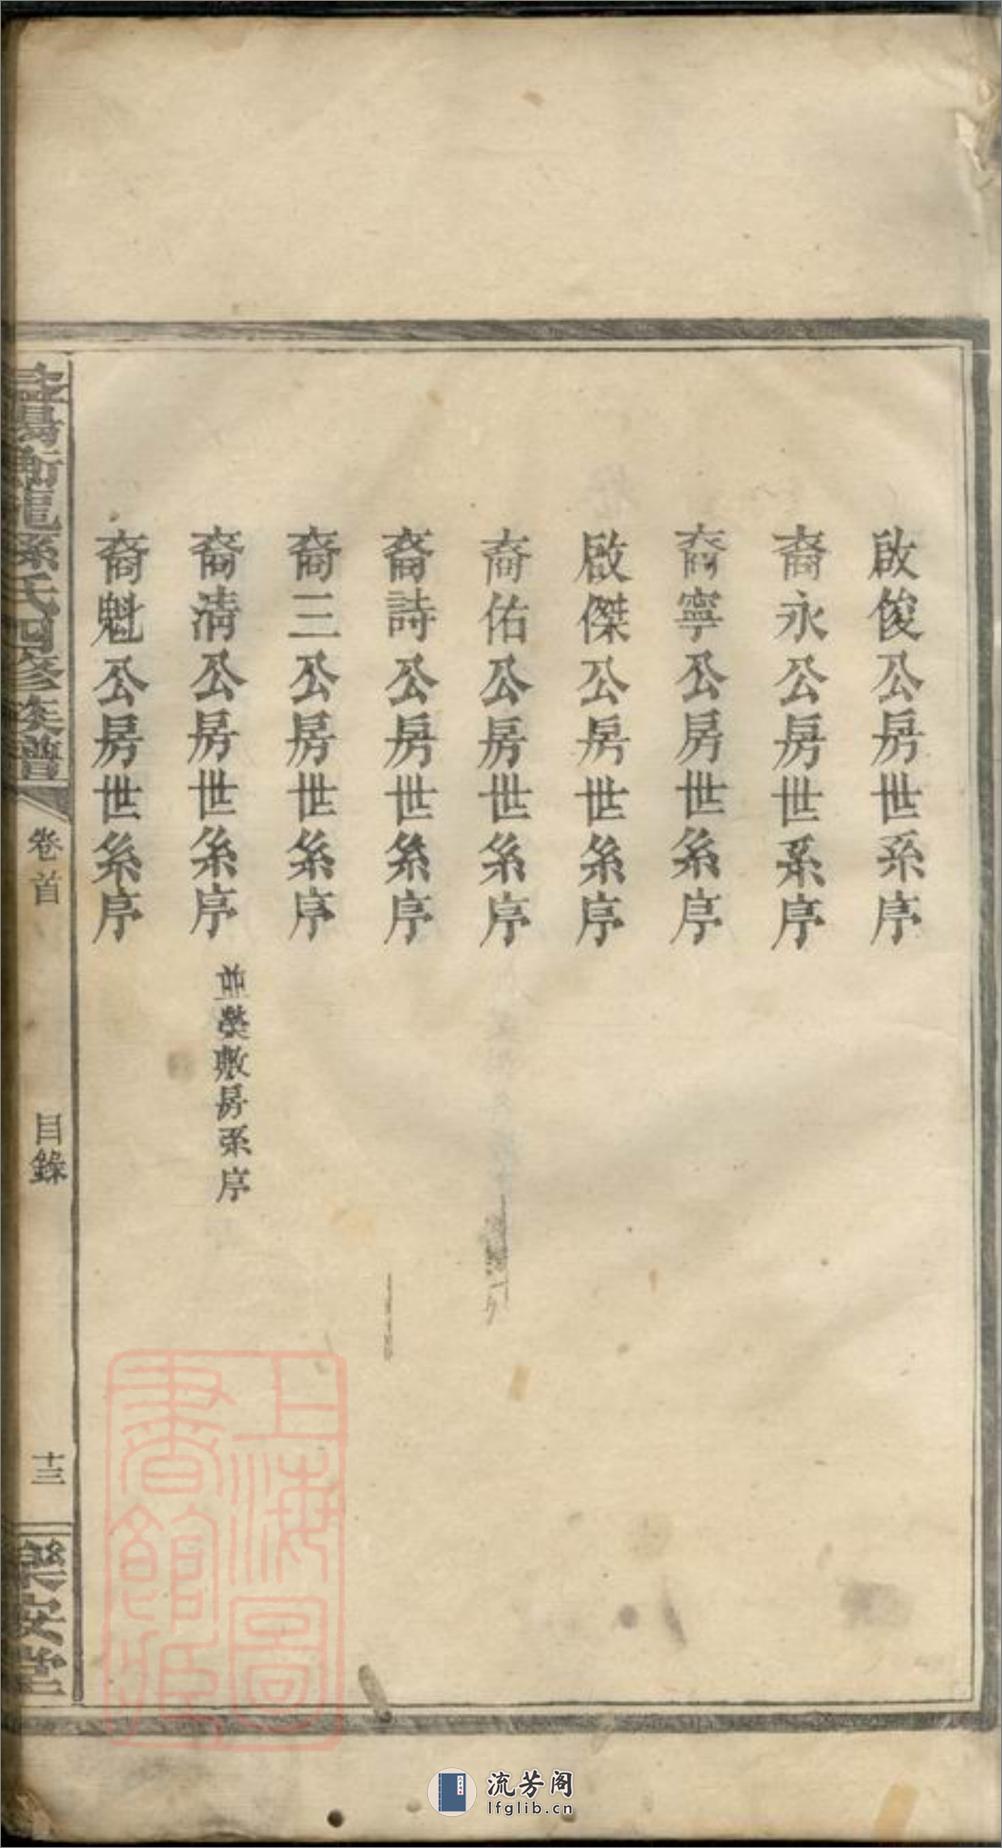 啟俊公房世系序
裔永公房世系序
裔寧公房世系序
啟傑公房世系序
裔佑公房世系序
裔詩公房世系序
裔三公房世系序
裔淸公房世系序
並榮敷房系序
裔魁公房世系序
龍孫氏四修族譜
卷首
目錄
十三
樂安堂
上海圖
書館
流芳阁
lfglib.cn